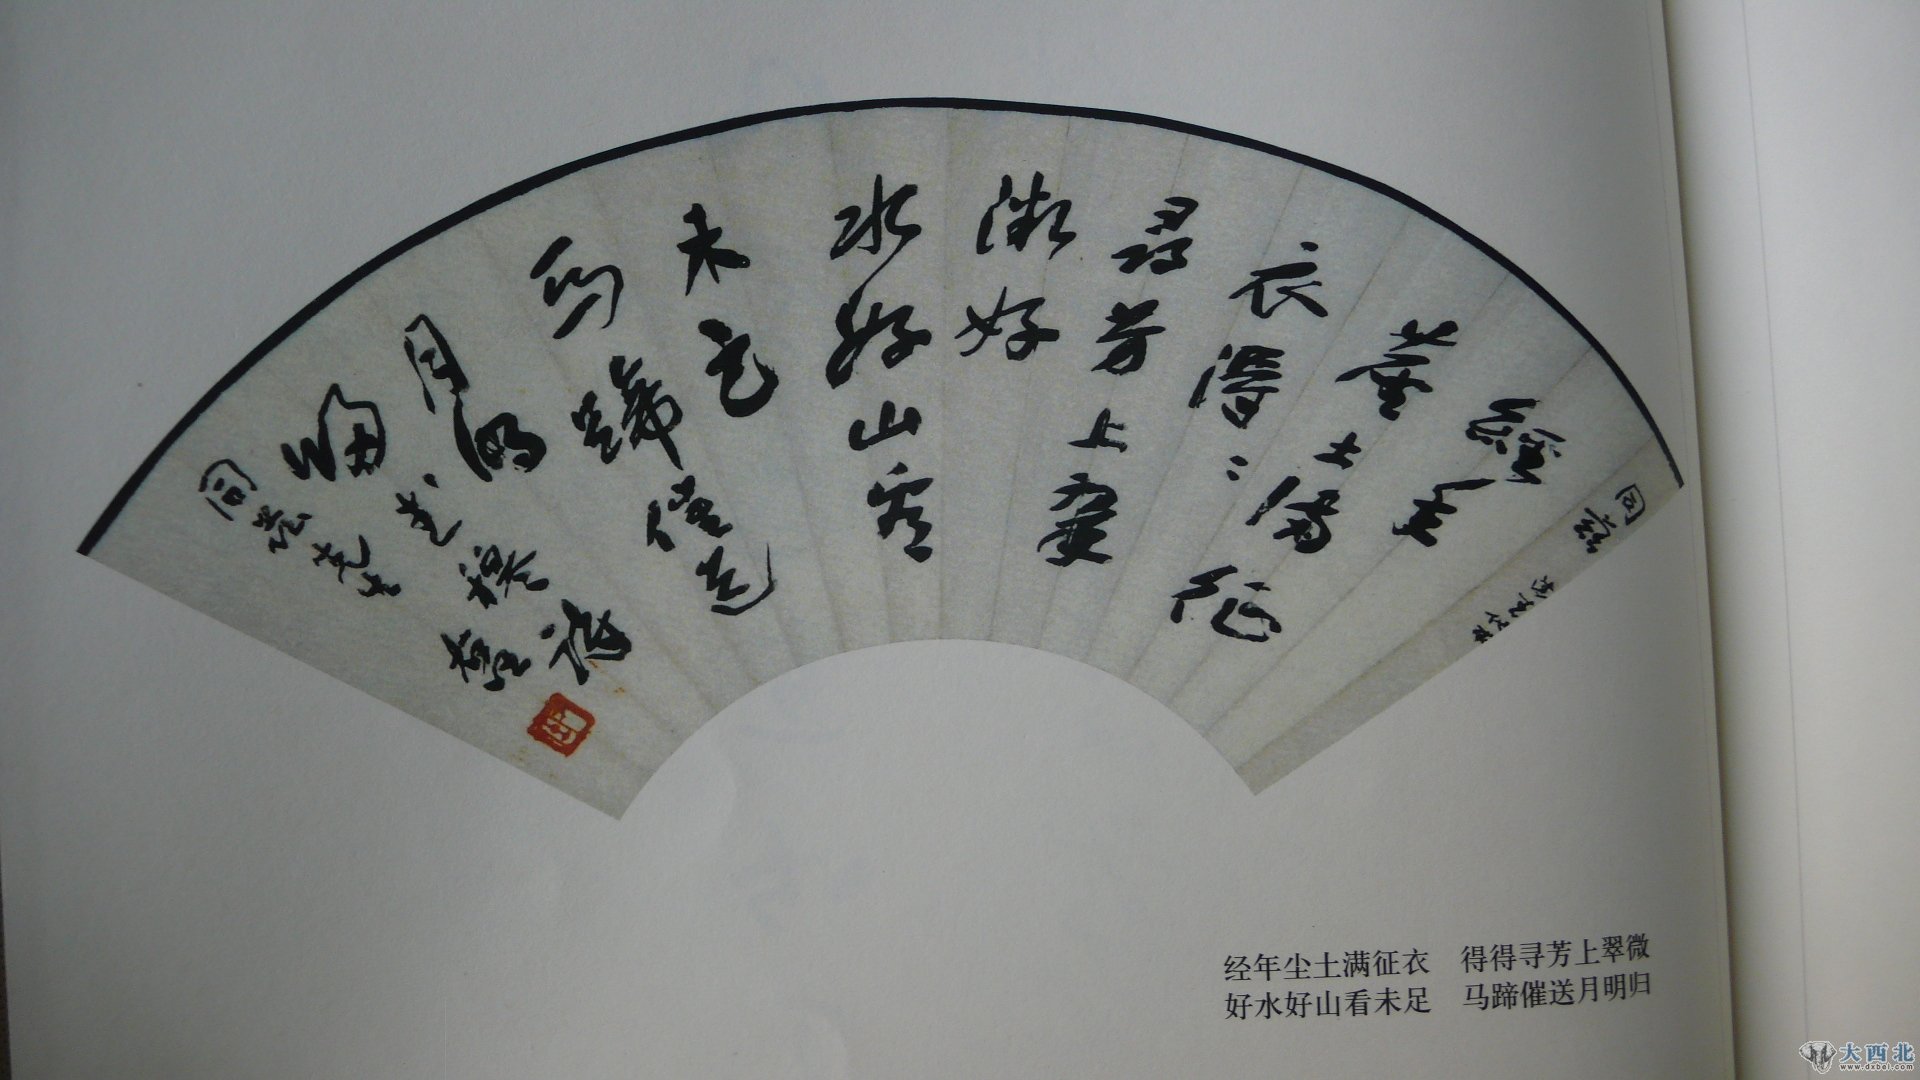 經年
塵土滿征
衣得〻
尋芳上翠
微好
水好山看
未足
馬蹄催送
月明
歸
经年尘土满征衣　得得寻芳上翠微
好水好山看未足　马蹄催送月明归
大西北
www.dxbei.com